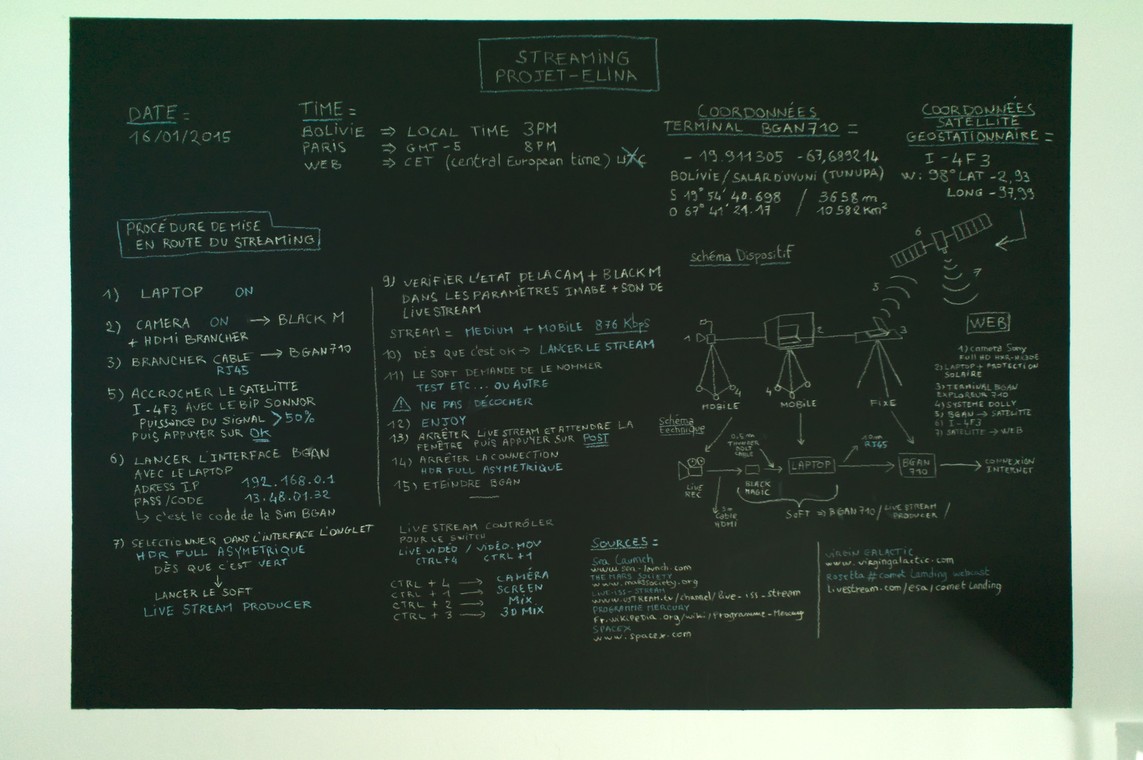 STREAMING
PROJET-ELINA
DATE =
16/01/2015
TIME =
BOLIVIE ⇒ LOCAL TIME 3PM
PARIS ⇒ GMT-5 8PM
WEB ⇒ CET (central European time)
COORDONNÉES
TERMINAL BGAN710 =
- 19.911305 -67,689214
BOLIVIE/SALAR D'UYUNI (TUNUPA)
S 19° 54' 40.698 / 3658m
O 67° 41' 21.17 10582km²
COORDONNÉES
SATELLITE
GEOSTATIONNAIRE =
I-4F3
W: 98° LAT -2,93
LONG -97,99
PROCÉDURE DE MISE
EN ROUTE DU STREAMING
1) LAPTOP ON
2) CAMERA ON → BLACK M
+ HDMI BRANCHER
3) BRANCHER CABLE → BGAN710
RJ45
5) ACCROCHER LE SATELITTE
I-4F3 AVEC LE BIP SONNOR
PUISSANCE DU SIGNAL >50%
PUIS APPUYER SUR OK
6) LANCER L'INTERFACE BGAN
AVEC LE LAPTOP
ADRESS IP 192.168.0.1
PASS/CODE 13.48.01.32
↳ c'est le code de la Sim BGAN
7) SELECTIONNER DANS L'INTERFACE L'ONGLET
HDR FULL ASYMETRIQUE
DÈS QUE C'EST VERT
↓
LANCER LE SOFT
LIVE STREAM PRODUCER
9) VERIFIER L'ETAT DE LA CAM + BLACK M
DANS LES PARAMETRES IMAGE + SON DE
LIVESTREAM
STREAM = MEDIUM + MOBILE 876 Kbps
10) DÈS QUE c'est OK → LANCER LE STREAM
11) LE SOFT DEMANDE DE LE NOMMER
TEST ETC... OU AUTRE
⚠ NE PAS DÉCOCHER
12) ENJOY
13) ARRÊTER LIVE STREAM ET ATTENDRE LA
FENÊTRE PUIS APPUYER SUR POST
14) ARRÊTER LA CONNECTION
HDR FULL ASYMETRIQUE
15) ETEINDRE BGAN
LIVE STREAM CONTRÔLER
POUR LE SWITCH
LIVE VIDÉO / VIDÉO.MOV
CTRL+4 CTRL+1
CTRL + 4 → CAMÉRA
CTRL + 1 → SCREEN
CTRL + 2 → MIX
CTRL + 3 → 3D MIX
Schéma Dispositif
6
5
7
1
2
3
4
4
MOBILE
MOBILE
FIXE
WEB
1) camera Sony
2) LAPTOP + PROTECTION
SOLAIRE
3) TERMINAL BGAN
EXPLORER 710
4) SYSTEME DOLLY
5) BGAN → SATELITTE
6) I-4F3
7) SATELITTE → WEB
Schéma
technique
CABLE
RJ45
LIVE
REC
BLACK
MAGIC
LAPTOP
BGAN
710
CONNEXION
INTERNET
Cable
HDMI
SOFT ⇒ BGAN710 / LIVE STREAM
PRODUCER /
SOURCES =
Sea Launch
www.sea-launch.com
THE MARS SOCIETY
www.marssociety.org
LIVE-ISS-STREAM
www.USTREAM.tv/channel/live-iss-stream
PROGRAMME MERCURY
Fr.wikipedia.org/wiki/Programme-Mercury
SPACEX
www.spacex.com
VIRGIN GALACTIC
www.virgingalactic.com
Rosetta #comet Landing webcast
livestream.com/esa/comet Landing